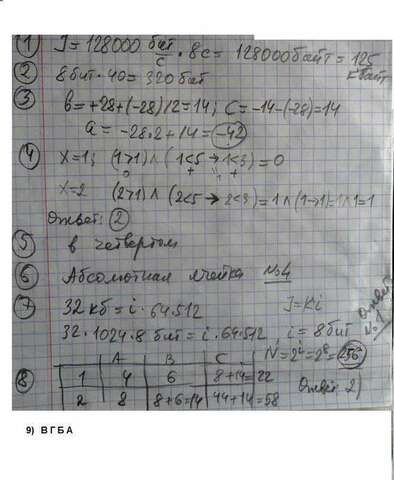 1 J = 128000 бит/с · 8с = 128000 байт = 125 Кбайт
2 8 бит · 40 = 320 бат
3 в = +28 + (-28)/2 = 14; С = -14 - (-28) = 14
a = -28·2 + 14 = -42
4 X=1; (1>1) ∧ (1<5 → 1<3) = 0
X=2 (2>1) ∧ (2<5 → 2<3) = 1 ∧ (1→1) = 1∧1 = 1
Ответ: 2
5 в четвертом
6 Абсолютная ячейка №4
7 32 кб = i · 64.512 J = Ki
32 · 1024 · 8 бит = i · 64.512, i = 8 бит
N = 2^i = 2^8 = 256
Ответ №1
8 A B C
1 4 6 8+14=22 Ответ 2)
2 8 8+6=14 44+14=58
9) В Г Б А